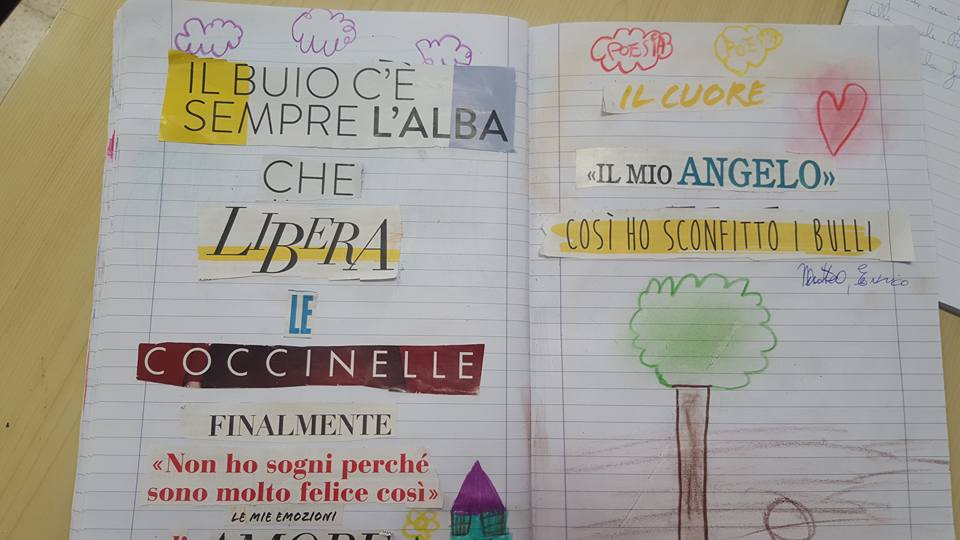 IL BUIO C'È
SEMPRE L'ALBA
CHE
LIBERA
LE
COCCINELLE
FINALMENTE
«Non ho sogni perché
sono molto felice così»
LE MIE EMOZIONI
POESIA POESIA
IL CUORE
«IL MIO ANGELO»
COSÌ HO SCONFITTO I BULLI
Matteo, Enrico